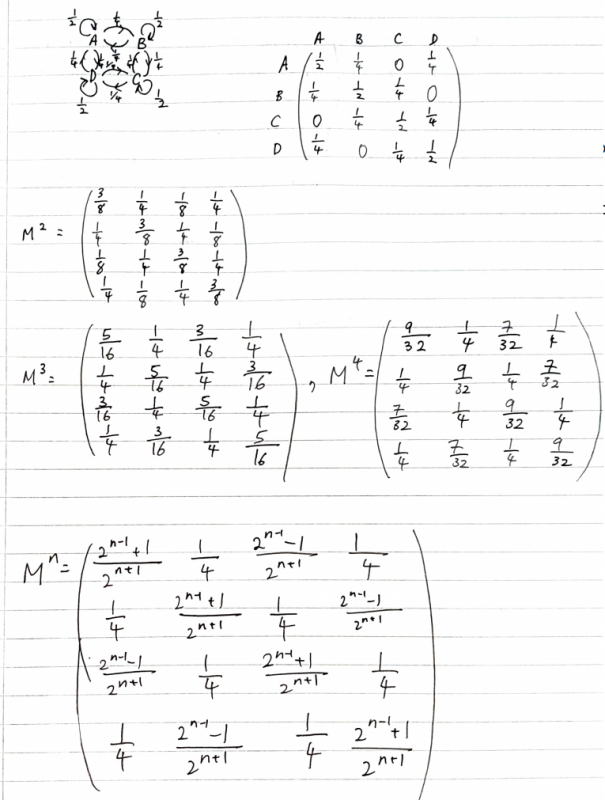 1/2 1/4 1/2
A B
1/4 1/4 1/4
D C
1/2 1/4 1/2
A B C D
A ( 1/2 1/4 0 1/4 )
B ( 1/4 1/2 1/4 0 )
C ( 0 1/4 1/2 1/4 )
D ( 1/4 0 1/4 1/2 )
M² =
( 3/8 1/4 1/8 1/4 )
( 1/4 3/8 1/4 1/8 )
( 1/8 1/4 3/8 1/4 )
( 1/4 1/8 1/4 3/8 )
M³ =
( 5/16 1/4 3/16 1/4 )
( 1/4 5/16 1/4 3/16 )
( 3/16 1/4 5/16 1/4 )
( 1/4 3/16 1/4 5/16 )
, M⁴ =
( 9/32 1/4 7/32 1/4 )
( 1/4 9/32 1/4 7/32 )
( 7/32 1/4 9/32 1/4 )
( 1/4 7/32 1/4 9/32 )
Mⁿ =
( (2ⁿ⁻¹+1)/2ⁿ⁺¹ 1/4 (2ⁿ⁻¹-1)/2ⁿ⁺¹ 1/4 )
( 1/4 (2ⁿ⁻¹+1)/2ⁿ⁺¹ 1/4 (2ⁿ⁻¹-1)/2ⁿ⁺¹ )
( (2ⁿ⁻¹-1)/2ⁿ⁺¹ 1/4 (2ⁿ⁻¹+1)/2ⁿ⁺¹ 1/4 )
( 1/4 (2ⁿ⁻¹-1)/2ⁿ⁺¹ 1/4 (2ⁿ⁻¹+1)/2ⁿ⁺¹ )